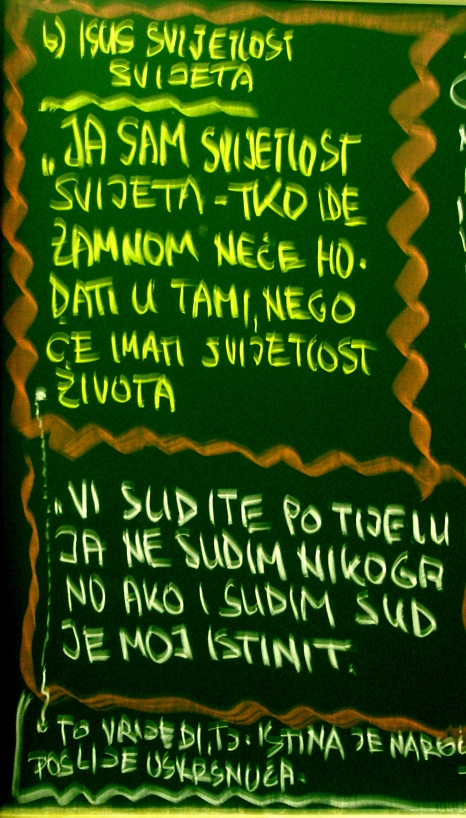 b) ISUS SVIJETLOST
SVIJETA
„JA SAM SVIJETLOST
SVIJETA - TKO IDE
ZAMNOM NEĆE HO-
DATI U TAMI, NEGO
ĆE IMATI SVIJETLOST
ŽIVOTA
„VI SUDITE PO TIJELU
JA NE SUDIM NIKOGA
NO AKO I SUDIM SUD
JE MOJ ISTINIT.
TO VRIJEDI, TJ. ISTINA JE
POSLIJE USKRSNUĆA.